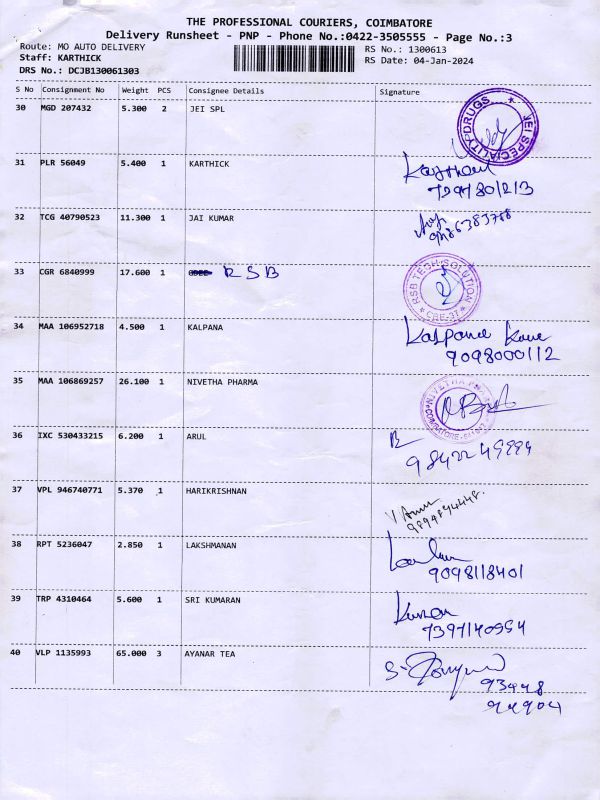 THE PROFESSIONAL COURIERS, COIMBATORE
Delivery Runsheet - PNP - Phone No.:0422-3505555 - Page No.:3
Route: MO AUTO DELIVERY RS No.: 1300613
Staff: KARTHICK RS Date: 04-Jan-2024
DRS No.: DCJB130061303
S No Consignment No Weight PCS Consignee Details Signature
30 MGD 207432 5.300 2 JEI SPL
JEI SPECIALITY DRUGS
31 PLR 56049 5.400 1 KARTHICK
32 TCG 40790523 11.300 1 JAI KUMAR
33 CGR 6840999 17.600 1 RSB
RSB TECH SOLUTION
CBE-37
34 MAA 106952718 4.500 1 KALPANA
Kalpana
9098000112
35 MAA 106869257 26.100 1 NIVETHA PHARMA
36 IXC 530433215 6.200 1 ARUL
37 VPL 946740771 5.370 1 HARIKRISHNAN
38 RPT 5236047 2.850 1 LAKSHMANAN
9098118401
39 TRP 4310464 5.600 1 SRI KUMARAN
40 VLP 1135993 65.000 3 AYANAR TEA